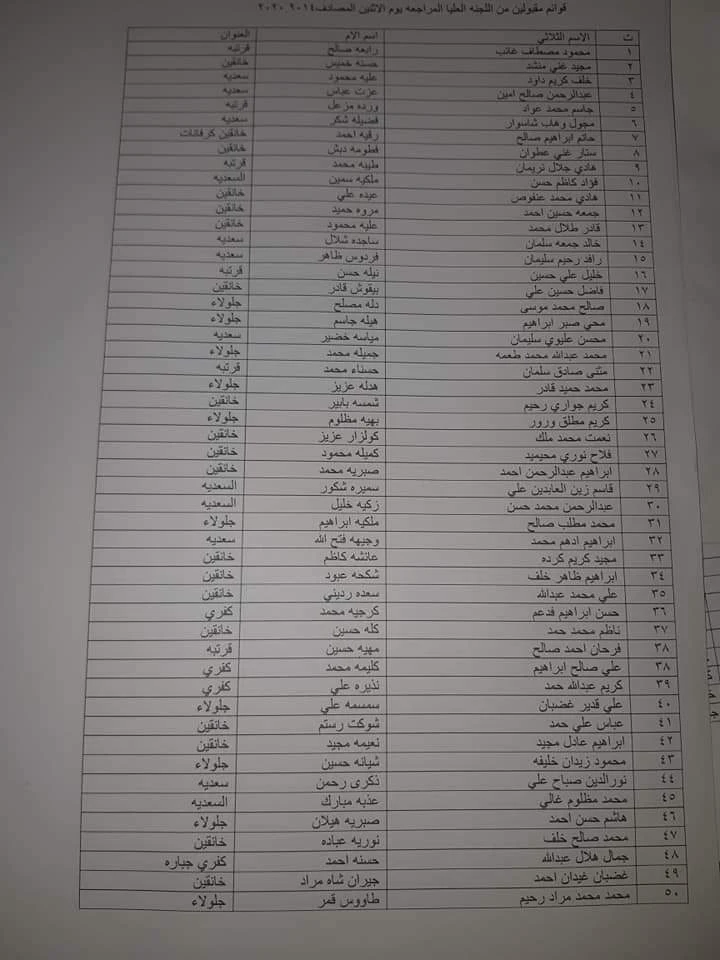 قوائم مقبولين من اللجنه العليا المراجعه يوم الاثنين المصادف٢٠١٤-٢٠٢٠
ت الاسم الثلاثي اسم الام العنوان
١ محمود مصطاف غائب رابعه صالح قرتبه
٢ مجيد غني منشد حسنه خميس خانقين
٣ خلف كريم داود عليه محمود سعديه
٤ عبدالرحمن صالح امين عزت عباس سعديه
٥ جاسم محمد عواد ورده مزعل قرتبه
٦ مجول وهاب شاسوار فضيله شكر سعديه
٧ حاتم ابراهيم صالح رقيه احمد خانقين كرفانات
٨ ستار غني عطوان فطومه دبش خانقين
٩ هادي جلال نريمان طيبه محمد قرتبه
١٠ فؤاد كاظم حسن ملكيه سمين السعديه
١١ هادي محمد عنفوص عيده علي خانقين
١٢ جمعه حسين احمد مروه حميد خانقين
١٣ قادر طلال محمد عليه محمود خانقين
١٤ خالد جمعه سلمان ساجده شلال سعديه
١٥ رافد رحيم سليمان فردوس ظاهر سعديه
١٦ خليل علي حسين نيله حسن قرتبه
١٧ فاضل حسين علي بيقوش قادر خانقين
١٨ صالح محمد موسى دله مصلح جلولاء
١٩ محي صبر ابراهيم هيله جاسم جلولاء
٢٠ محسن عليوي سليمان مياسه خضير سعديه
٢١ محمد عبدالله محمد طعمه جميله محمد جلولاء
٢٢ مثنى صادق سلمان حسناء محمد قرتبه
٢٣ محمد حميد قادر هدله عزيز جلولاء
٢٤ كريم جواري رحيم شمسه بابير خانقين
٢٥ كريم مطلق ورور بهيه مظلوم جلولاء
٢٦ نعمت محمد ملك كولزار عزيز خانقين
٢٧ فلاح نوري محيميد كميله محمود خانقين
٢٨ ابراهيم عبدالرحمن احمد صبريه محمد خانقين
٢٩ قاسم زين العابدين علي سميره شكور السعديه
٣٠ عبدالرحمن محمد حسن زكيه خليل السعديه
٣١ محمد مطلب صالح ملكيه ابراهيم جلولاء
٣٢ ابراهيم ادهم محمد وجيهه فتح الله سعديه
٣٣ مجيد كريم كرده عائشه كاظم خانقين
٣٤ ابراهيم ظاهر خلف شكحه عبود خانقين
٣٥ علي محمد عبدالله سعده رديني خانقين
٣٦ حسن ابراهيم فدعم كرجيه محمد كفري
٣٧ ناظم محمد حمد كله حسين خانقين
٣٨ فرحان احمد صالح مهيه حسين قرتبه
٣٨ علي صالح ابراهيم كليمه محمد كفري
٣٩ كريم عبدالله حمد نذيره علي كفري
٤٠ علي قدير غضبان سمسمه علي جلولاء
٤١ عباس علي حمد شوكت رستم خانقين
٤٢ ابراهيم عادل مجيد نعيمه مجيد خانقين
٤٣ محمود زيدان خليفه شيانه حسين جلولاء
٤٤ نورالدين صباح علي ذكرى رحمن سعديه
٤٥ محمد مظلوم غالي عذبه مبارك السعديه
٤٦ هاشم حسن احمد صبريه هيلان جلولاء
٤٧ محمد صالح خلف نوريه عباده خانقين
٤٨ جمال هلال عبدالله حسنه احمد كفري جباره
٤٩ غضبان غيدان احمد جيران شاه مراد خانقين
٥٠ محمد محمد مراد رحيم طاووس قمر جلولاء